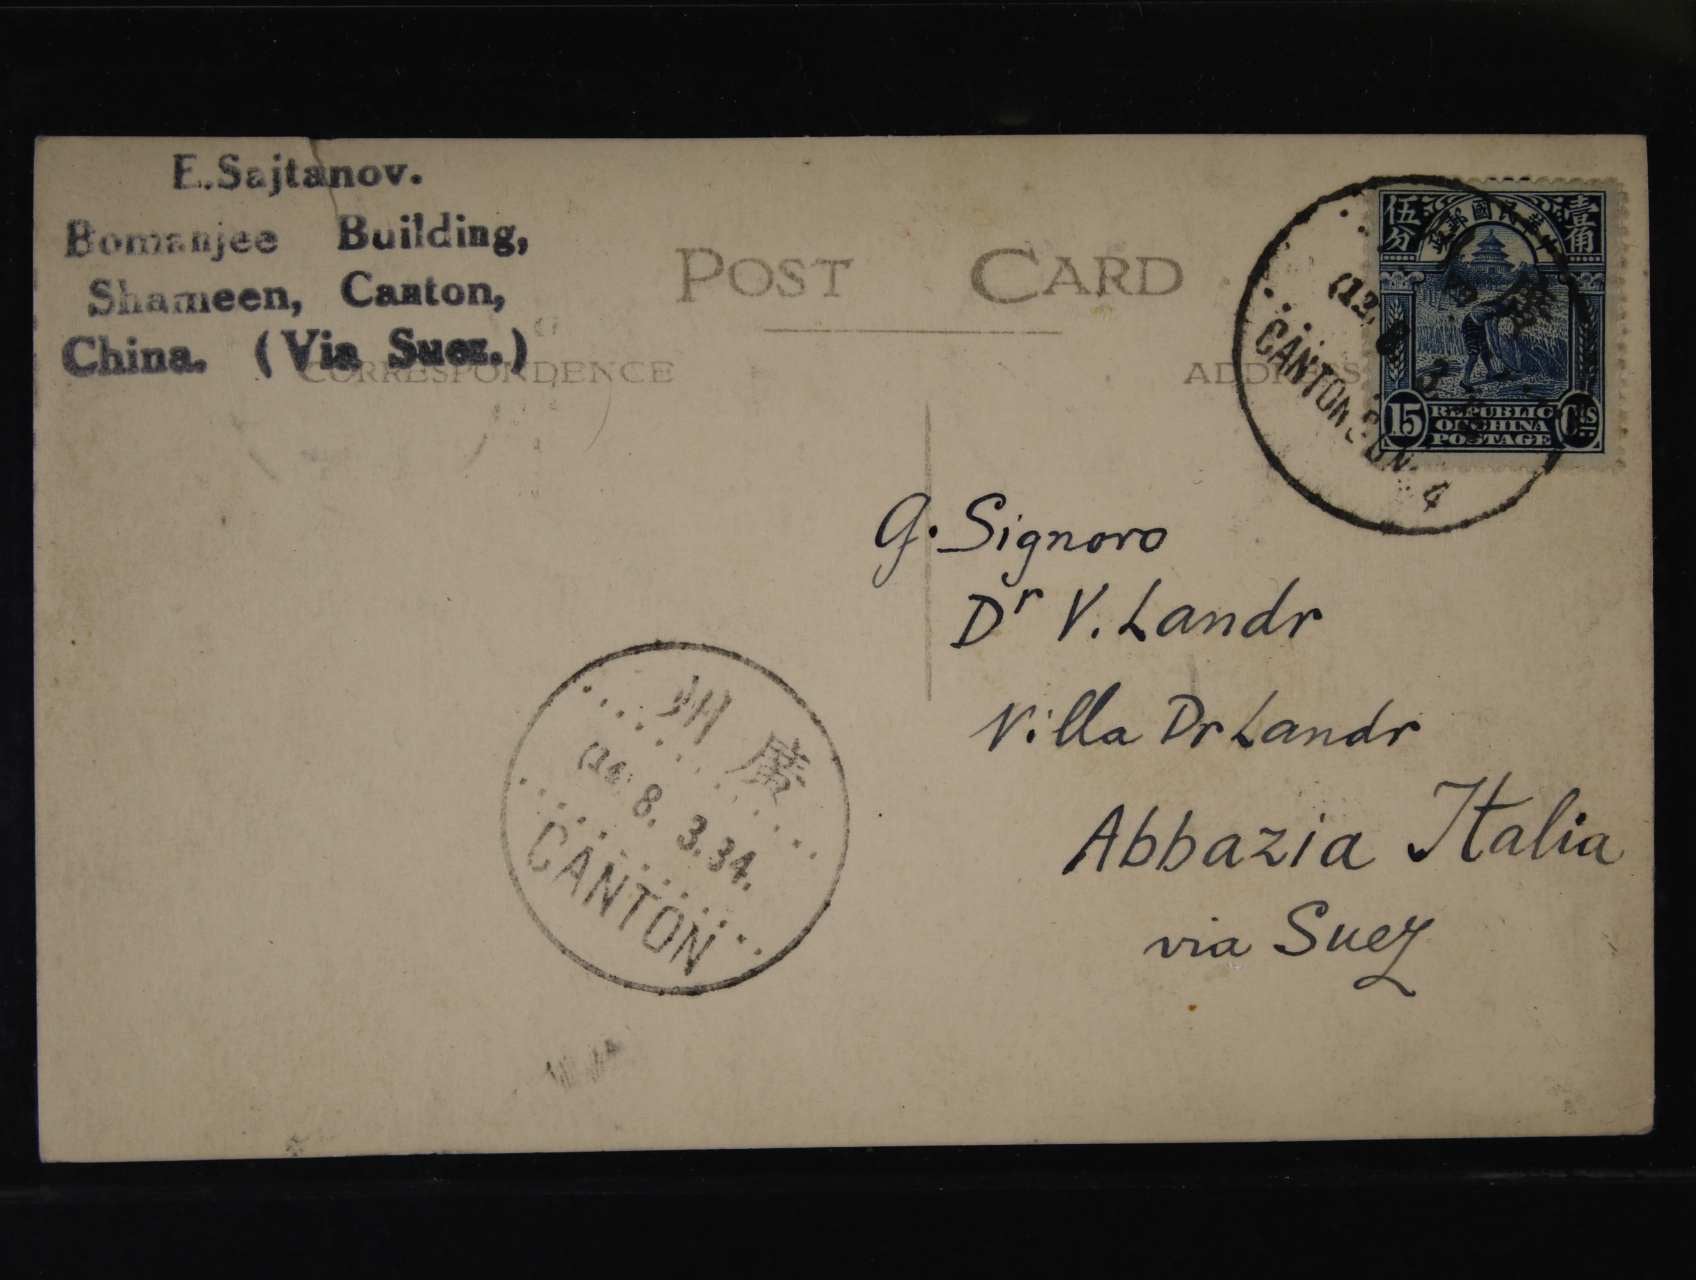 E.Sajtanov.
Bomanjee Building,
Shameen, Canton,
China. (Via Suez.)
POST CARD
CORRESPONDENCE
ADDRESS
伍分
中華民國郵政
壹角
15
REPUBLIC
OF CHINA
POSTAGE
CTS
廣
(12)
CANTON
4
G. Signoro
Dr V. Landr
Villa Dr Landr
Abbazia Italia
via Suez
州廣
8. 3.34.
CANTON